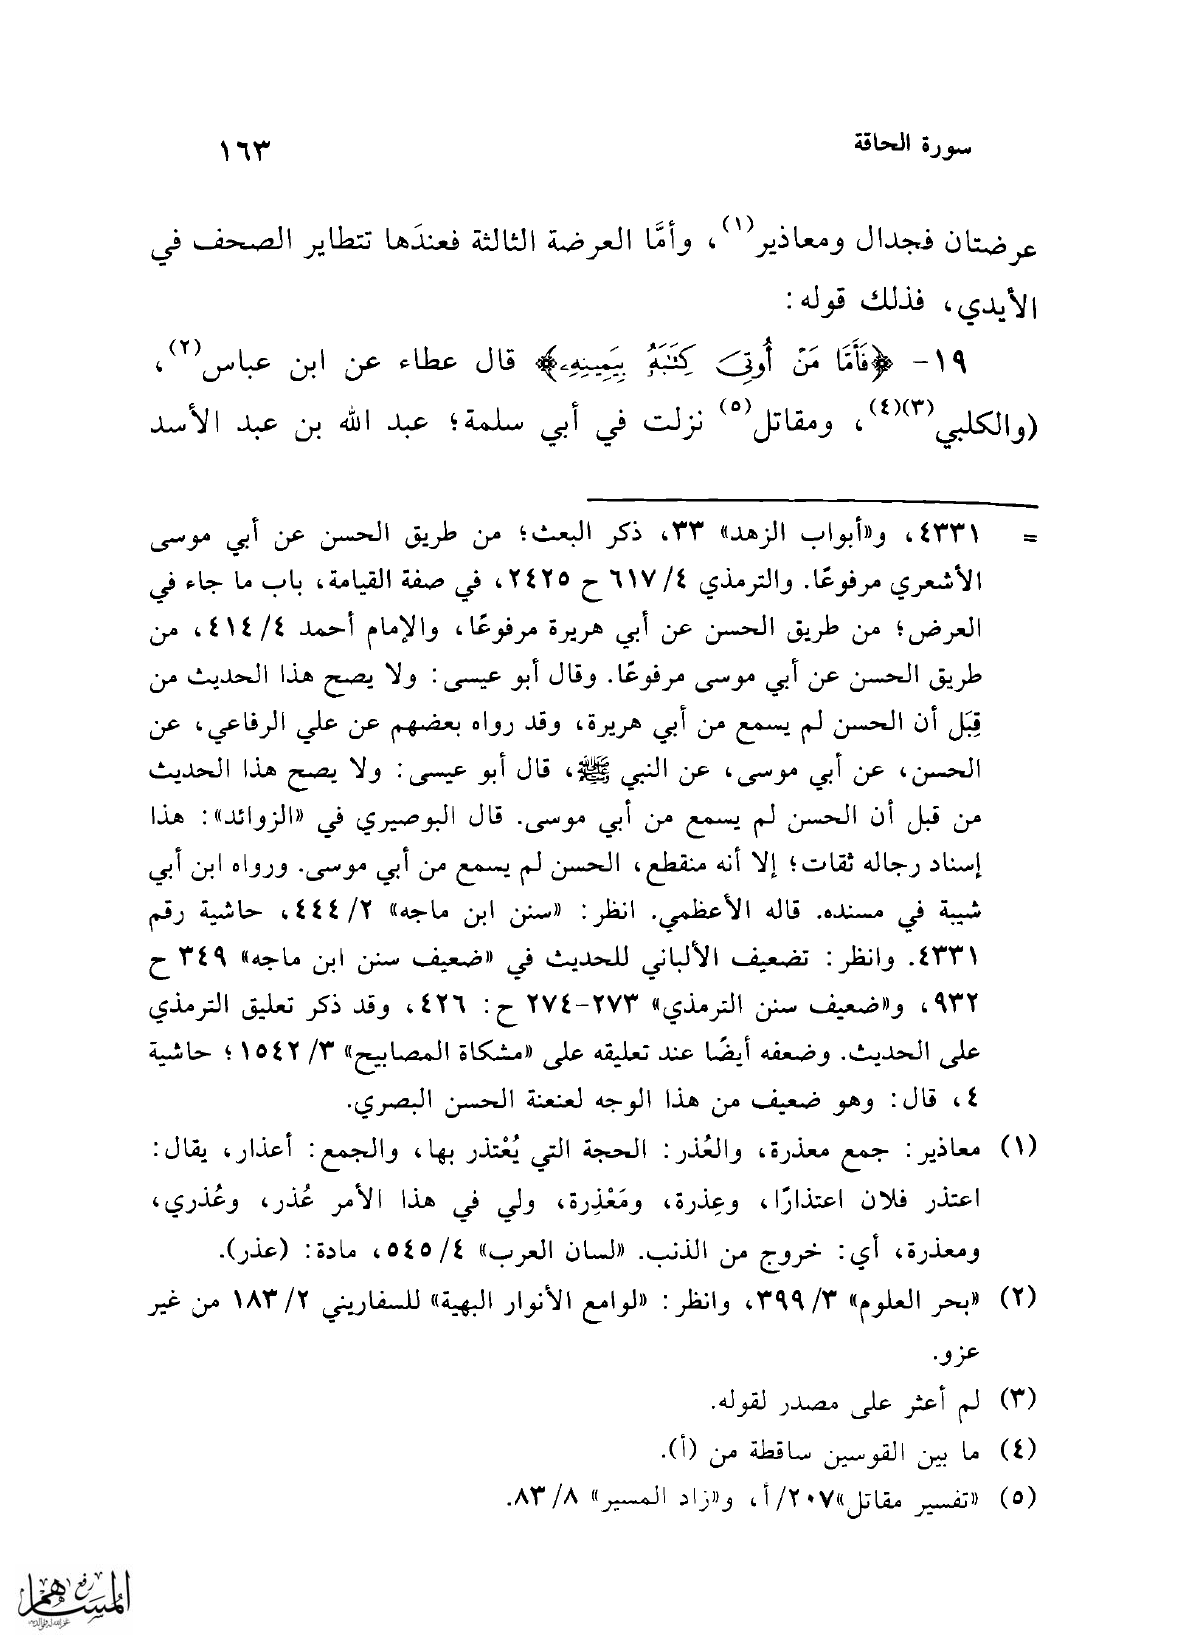 سورة الحاقة ١٦٣
عرضتان فجدال ومعاذير(١)، وأمَّا العرضة الثالثة فعندَها تتطاير الصحف في
الأيدي، فذلك قوله:
١٩- ﴿فَأَمَّا مَنْ أُوتِيَ كِتَابَهُ بِيَمِينِهِ﴾ قال عطاء عن ابن عباس(٢)،
(والكلبي(٣)(٤)، ومقاتل(٥) نزلت في أبي سلمة؛ عبد الله بن عبد الأسد
= ٤٣٣١، و«أبواب الزهد» ٣٣، ذكر البعث؛ من طريق الحسن عن أبي موسى
الأشعري مرفوعًا. والترمذي ٤/ ٦١٧ ح ٢٤٢٥، في صفة القيامة، باب ما جاء في
العرض؛ من طريق الحسن عن أبي هريرة مرفوعًا، والإمام أحمد ٤/ ٤١٤، من
طريق الحسن عن أبي موسى مرفوعًا. وقال أبو عيسى: ولا يصح هذا الحديث من
قِبَل أن الحسن لم يسمع من أبي هريرة، وقد رواه بعضهم عن علي الرفاعي، عن
الحسن، عن أبي موسى، عن النبي ﷺ، قال أبو عيسى: ولا يصح هذا الحديث
من قبل أن الحسن لم يسمع من أبي موسى. قال البوصيري في «الزوائد»: هذا
إسناد رجاله ثقات؛ إلا أنه منقطع، الحسن لم يسمع من أبي موسى. ورواه ابن أبي
شيبة في مسنده. قاله الأعظمي. انظر: «سنن ابن ماجه» ٢/ ٤٤٤، حاشية رقم
٤٣٣١. وانظر: تضعيف الألباني للحديث في «ضعيف سنن ابن ماجه» ٣٤٩ ح
٩٣٢، و«ضعيف سنن الترمذي» ٢٧٣-٢٧٤ ح: ٤٢٦، وقد ذكر تعليق الترمذي
على الحديث. وضعفه أيضًا عند تعليقه على «مشكاة المصابيح» ٣/ ١٥٤٢؛ حاشية
٤، قال: وهو ضعيف من هذا الوجه لعنعنة الحسن البصري.
(١) معاذير: جمع معذرة، والعُذر: الحجة التي يُعْتذر بها، والجمع: أعذار، يقال:
اعتذر فلان اعتذارًا، وعِذرة، ومَعْذِرة، ولي في هذا الأمر عُذر، وعُذري،
ومعذرة، أي: خروج من الذنب. «لسان العرب» ٤/ ٥٤٥، مادة: (عذر).
(٢) «بحر العلوم» ٣/ ٣٩٩، وانظر: «لوامع الأنوار البهية» للسفاريني ٢/ ١٨٣ من غير
عزو.
(٣) لم أعثر على مصدر لقوله.
(٤) ما بين القوسين ساقطة من (أ).
(٥) «تفسير مقاتل»٢٠٧/ أ، و«زاد المسير» ٨/ ٨٣.